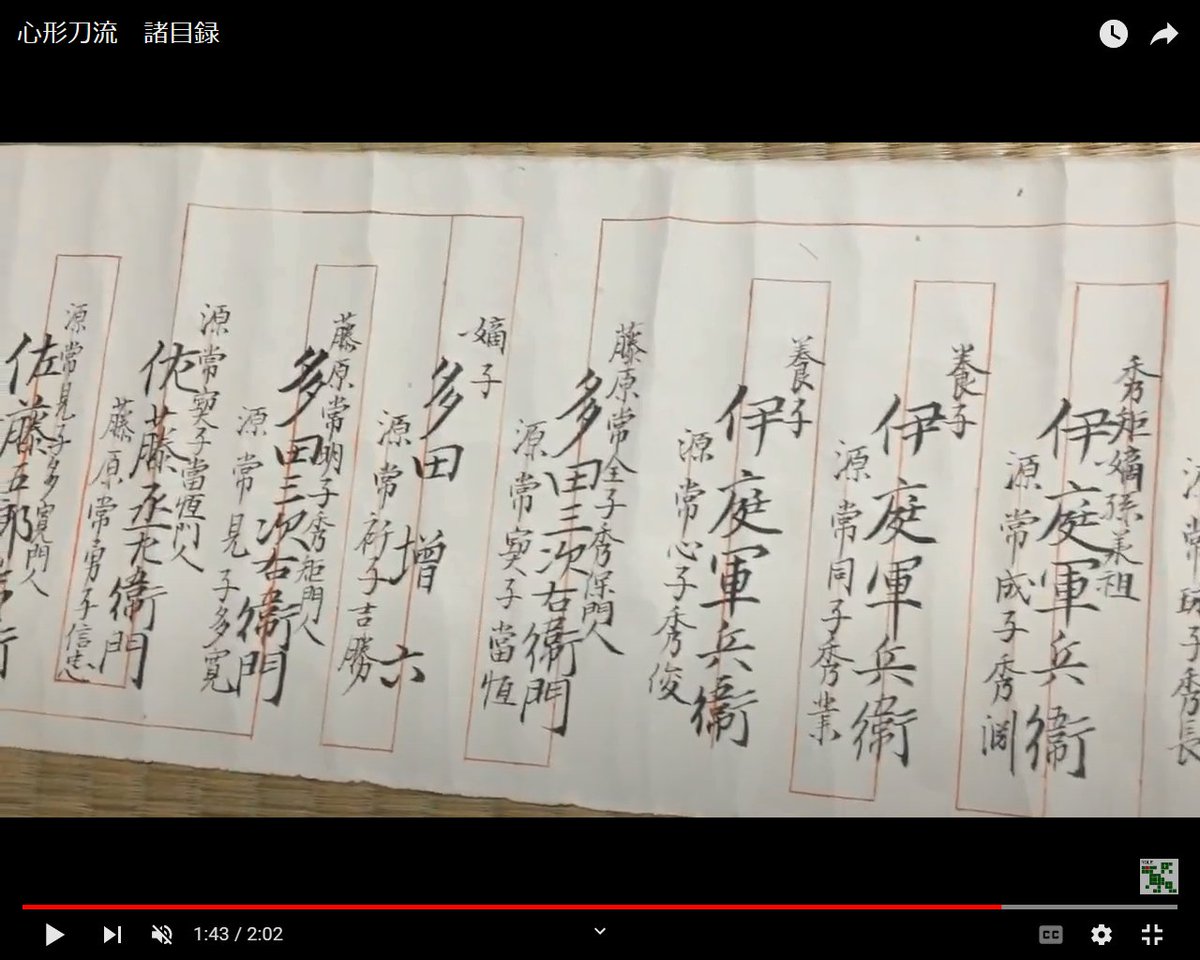 心形刀流　諸目録
秀矩嫡孫義祖
伊庭軍兵衛
源常成子秀渊
養子
伊庭軍兵衛
源常同子秀業
養子
伊庭軍兵衛
源常心子秀俊
藤原常全子秀保門人
多田三次右衛門
源常寏子當恒
嫡子
多田増六
源常子吉勝
藤原常明子秀矩門人
多田三次右衛門
源常見子多寛
源常寏子當恒門人
佐藤丞左衛門
藤原常勇子信忠
源常見子多寛門人
佐藤五郎
1:43 / 2:02
CC